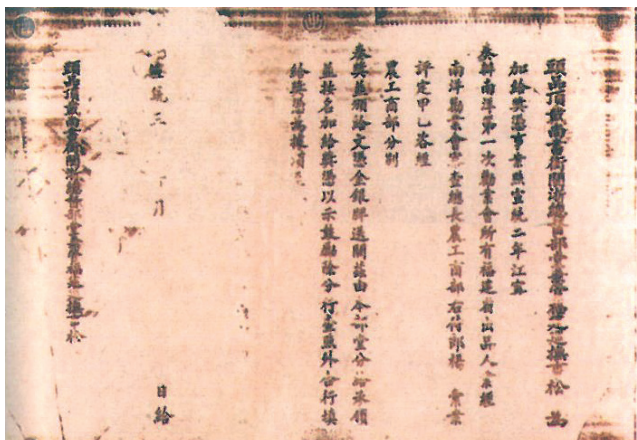 頭品頂戴尚書銜閩浙總督部堂兼管福建巡撫事松 為
加給獎憑事案照宣統二年江寧
奏辦南洋第一次勸業會所有福建省出品人業經
南洋勸業會審查總長農工商部右侍郎楊 彙業
評定甲乙咨經
農工商部分別
奏獎並頒給文憑金銀牌送閩茲由本部堂分給承領
並按名加給獎憑以示鼓勵除分行查照外合行填
給獎憑為據須
統三 月 日給
頭品頂戴尚書銜閩浙總督部堂兼福建巡撫事松